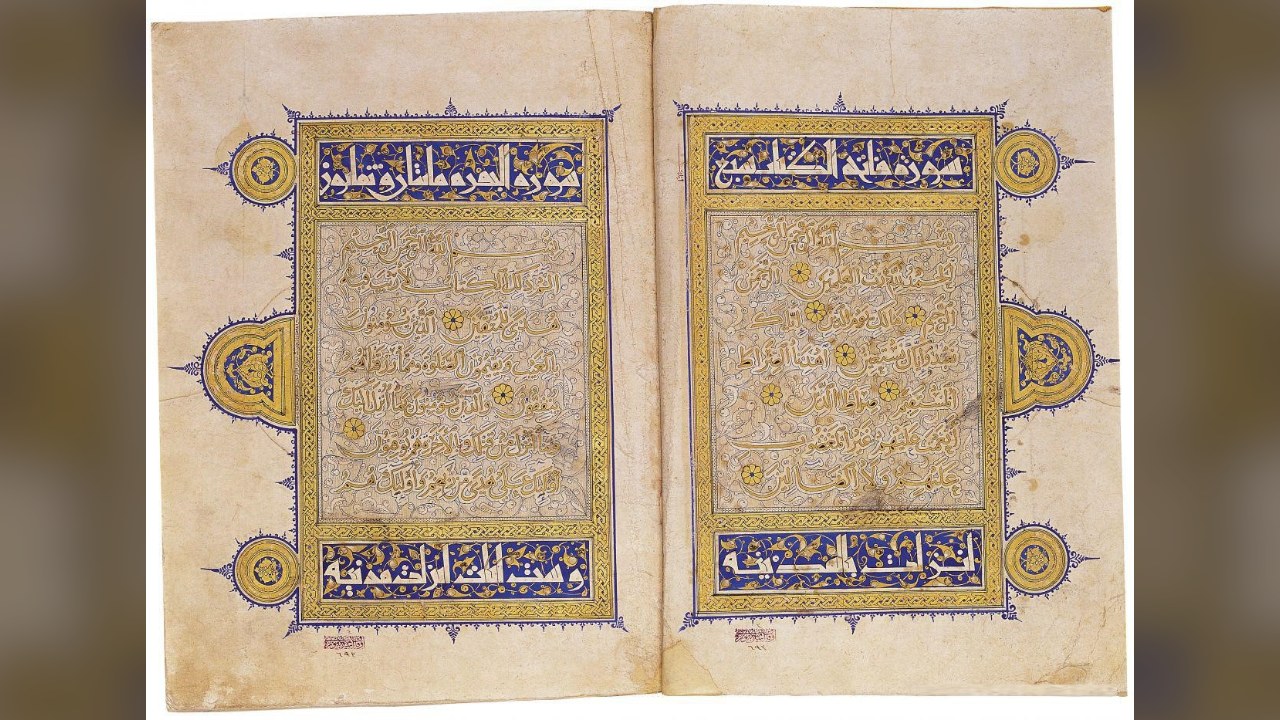 سورة فاتحة الكتاب سبع
بسم الله الرحمن الرحيم
الحمد لله رب العالمين الرحمن
الرحيم ملك يوم الدين اياك
نعبد واياك نستعين اهدنا الصراط
المستقيم صراط الذين
انعمت عليهم غير المغضوب
عليهم ولا الضالين
سورة البقرة مائتان وثمانون
بسم الله الرحمن الرحيم
الم ذلك الكتاب لا ريب فيه
هدى للمتقين الذين يؤمنون
بالغيب ويقيمون الصلوة ومما رزقناهم
ينفقون والذين يؤمنون بما انزل اليك
وما انزل من قبلك وبالاخرة هم يوقنون
اولئك على هدى من ربهم واولئك هم
مدنية